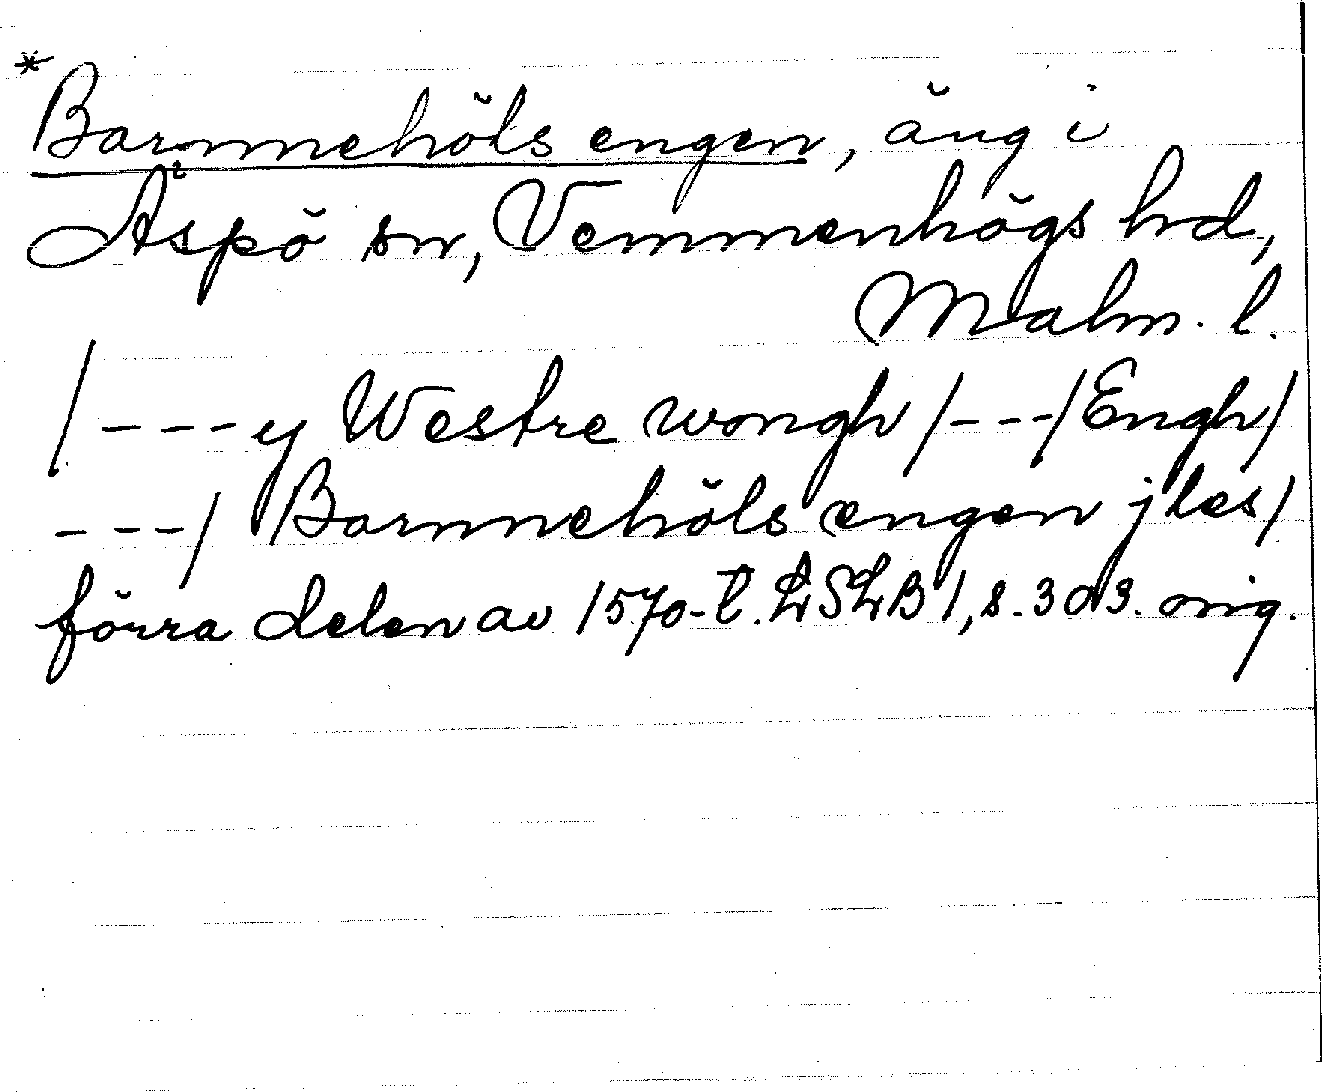 *
Barnnehöls engen, äng i
Äspö sn, Vemmenhögs hd,
Malm. l.
/---y Westre wongh/---/Engh/
---/ Barnnehöls engen jles/
förra delen av 1570-t. LSLB 1, s. 303. orig.